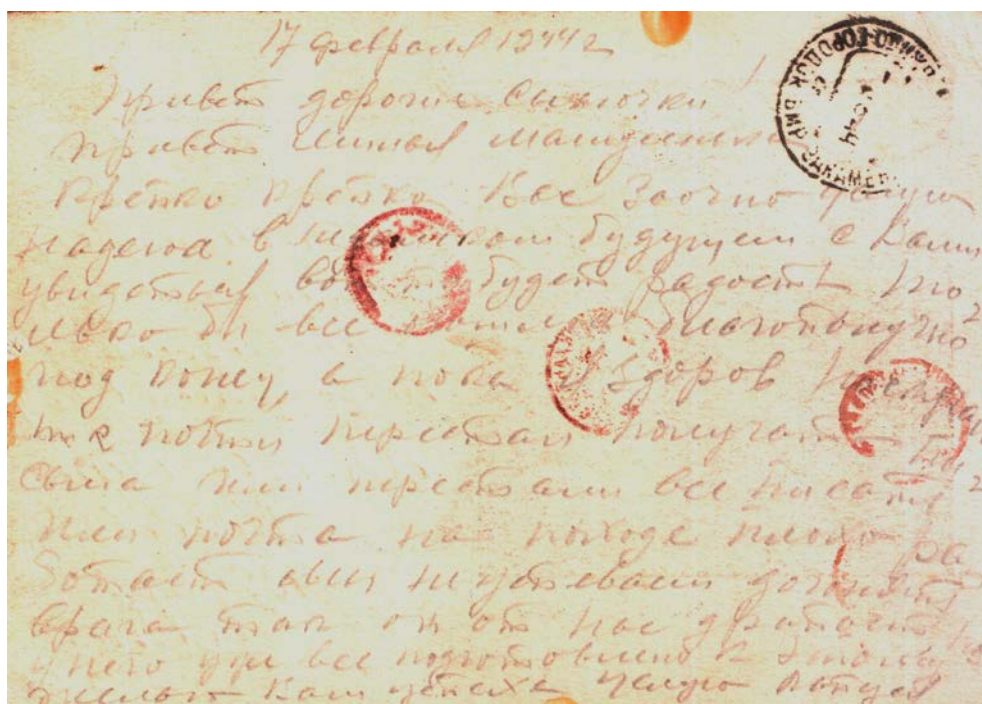 17 февраля 1944г
Привет дорогие сыночки!
Привет милая мамусенька
Крепко крепко Вас заочно целую
надеюсь в будущем с Вами
увидеться вот будет радость то
лько бы все благополучно
под конец, а пока я здоров
почти перестал получать
сыша или перестали все писать
или почта на походе плохо ра
ботает мы не успеваем догонять
врага так он от нас драпает
у него уже все подготовлено к этому
желаю Вам успеха целую папуся